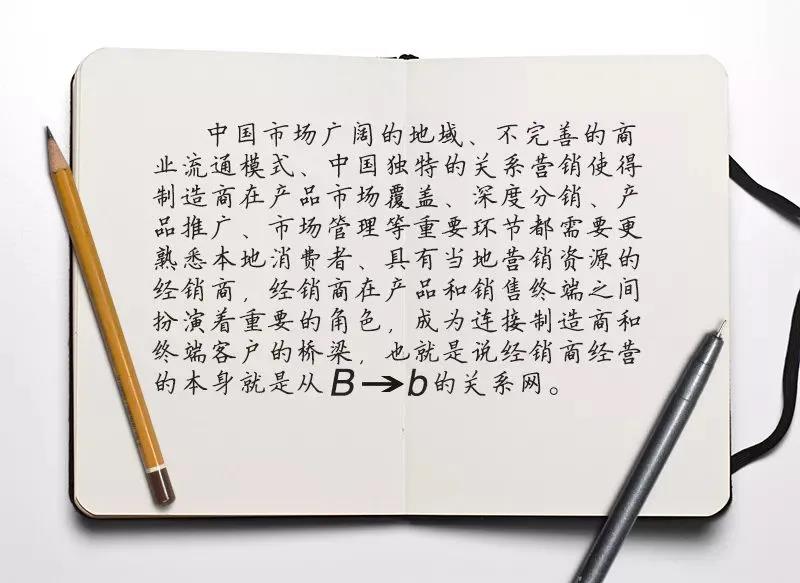 中国市场广阔的地域、不完善的商
业流通模式、中国独特的关系营销使得
制造商在产品市场覆盖、深度分销、产
品推广、市场管理等重要环节都需要更
熟悉本地消费者、具有当地营销资源的
经销商，经销商在产品和销售终端之间
扮演着重要的角色，成为连接制造商和
终端客户的桥梁，也就是说经销商经营
的本身就是从B→b的关系网。